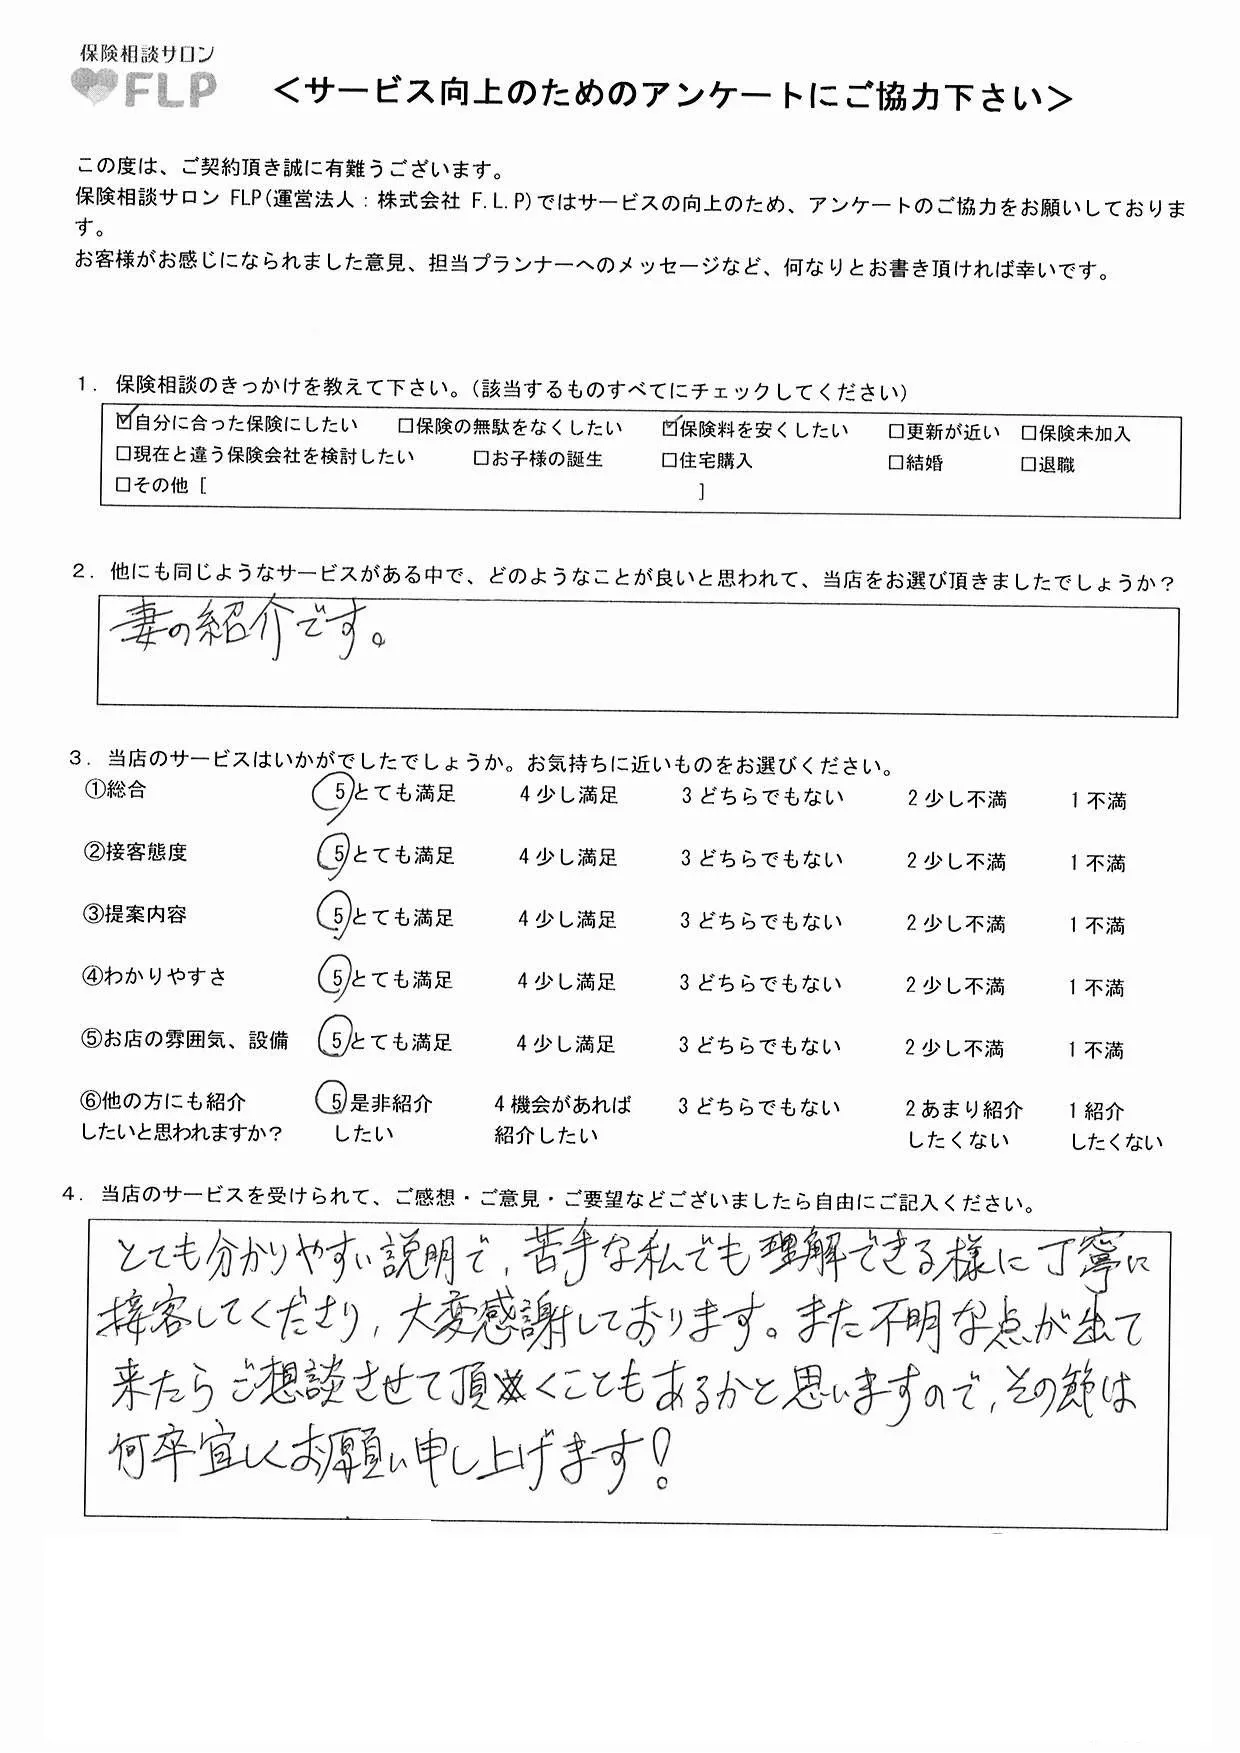 保険相談サロン
FLP
＜サービス向上のためのアンケートにご協力下さい＞
この度は、ご契約頂き誠に有難うございます。
保険相談サロン FLP(運営法人：株式会社 F.L.P)ではサービスの向上のため、アンケートのご協力をお願いしておりま
す。
お客様がお感じになられました意見、担当プランナーへのメッセージなど、何なりとお書き頂ければ幸いです。
１．保険相談のきっかけを教えて下さい。(該当するものすべてにチェックしてください)
☑自分に合った保険にしたい □保険の無駄をなくしたい ☑保険料を安くしたい □更新が近い □保険未加入
□現在と違う保険会社を検討したい □お子様の誕生 □住宅購入 □結婚 □退職
□その他 [ ]
２．他にも同じようなサービスがある中で、どのようなことが良いと思われて、当店をお選び頂きましたでしょうか？
妻の紹介です。
３．当店のサービスはいかがでしたでしょうか。お気持ちに近いものをお選びください。
①総合 5とても満足 4少し満足 3どちらでもない 2少し不満 1不満
②接客態度 5とても満足 4少し満足 3どちらでもない 2少し不満 1不満
③提案内容 5とても満足 4少し満足 3どちらでもない 2少し不満 1不満
④わかりやすさ 5とても満足 4少し満足 3どちらでもない 2少し不満 1不満
⑤お店の雰囲気、設備 5とても満足 4少し満足 3どちらでもない 2少し不満 1不満
⑥他の方にも紹介 5是非紹介 4機会があれば 3どちらでもない 2あまり紹介 1紹介
したいと思われますか？ したい 紹介したい したくない したくない
４．当店のサービスを受けられて、ご感想・ご意見・ご要望などございましたら自由にご記入ください。
とても分かりやすい説明で、苦手な私でも理解できる様に丁寧に
接客してくださり、大変感謝しております。また不明な点が出て
来たらご想談させて頂くこともあるかと思いますので、その節は
何卒宜しくお願い申し上げます！